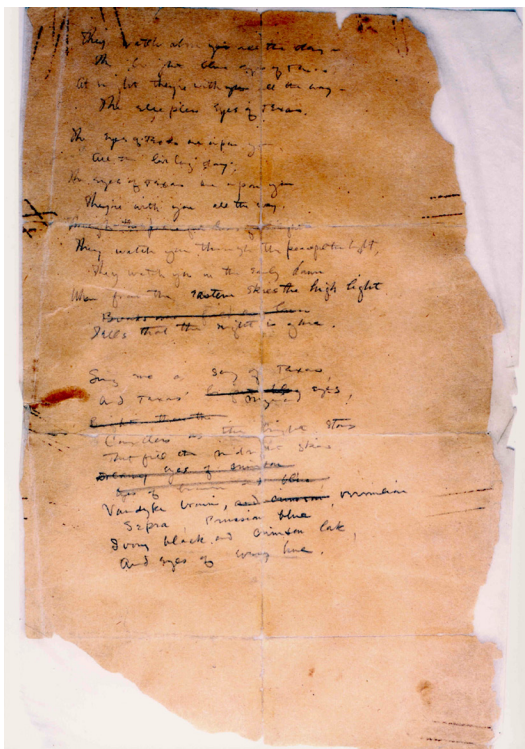 They watch above you all the day
The eyes of Texas
At night they're with you all the way
The sleepless Eyes of Texas.
The Eyes of Texas are upon you
All the live long day;
The eyes of Texas are upon you
They're with you all the way.
They watch you through the peaceful night,
They watch you in the early dawn
When from the Eastern skies the high light
Tells that the night is gone.
Sing me a song of Texas,
And Texas' eyes
Countless as the bright stars
That fill the midnight skies
Vandyke brown, vermilion
Sepia, Prussian blue
Ivory black and crimson lake,
And eyes of every hue.